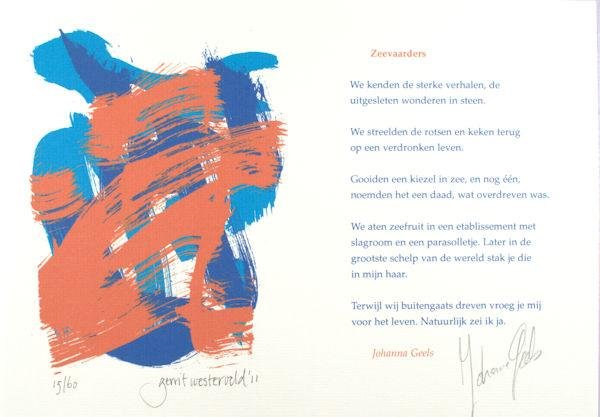 Zeevaarders
We kenden de sterke verhalen, de
uitgesleten wonderen in steen.
We streelden de rotsen en keken terug
op een verdronken leven.
Gooiden een kiezel in zee, en nog één,
noemden het een daad, wat overdreven was.
We aten zeefruit in een etablissement met
slagroom en een parasolletje. Later in de
grootste schelp van de wereld stak je die
in mijn haar.
Terwijl wij buitengaats dreven vroeg je mij
voor het leven. Natuurlijk zei ik ja.
Johanna Geels
Johanna Geels
15/60
gerrit westerveld '11